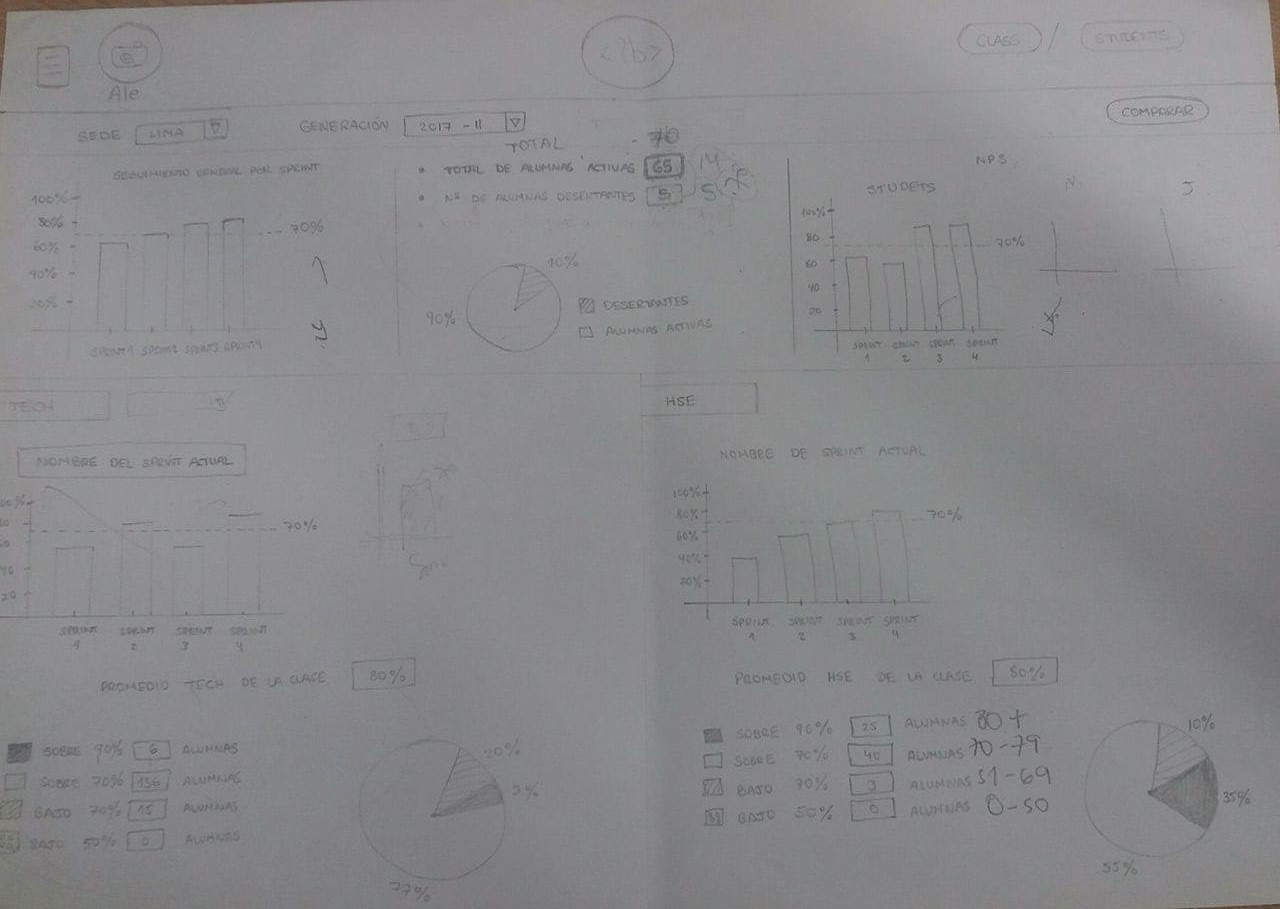 CLASS / STUDENTS
Ale
COMPARAR
SEDE LIMA GENERACIÓN 2017 - II
SEGUIMIENTO GENERAL POR SPRINT
100%
80%
60%
40%
20%
70%
SPRINT1 SPRINT2 SPRINT3 SPRINT4
TOTAL - 70
• TOTAL DE ALUMNAS ACTIVAS 65 14
• Nº DE ALUMNAS DESERTANTES 5 5
10%
90%
DESERTANTES
ALUMNAS ACTIVAS
NPS
STUDETS
M J
100%
80
60
40
20
70%
SPRINT 1 SPRINT 2 SPRINT 3 SPRINT 4
TECH
NOMBRE DEL SPRINT ACTUAL
70%
SPRINT 1 SPRINT 2 SPRINT 3 SPRINT 4
PROMEDIO TECH DE LA CLASE 80%
SOBRE 90% 6 ALUMNAS
SOBRE 70% 136 ALUMNAS
BAJO 70% 15 ALUMNAS
BAJO 50% 0 ALUMNAS
20%
3%
77%
HSE
NOMBRE DE SPRINT ACTUAL
100%
80%
60%
40%
20%
70%
SPRINT 1 SPRINT 2 SPRINT 3 SPRINT 4
PROMEDIO HSE DE LA CLASE 80%
SOBRE 90% 25 ALUMNAS 80 +
SOBRE 70% 40 ALUMNAS 70 - 79
BAJO 70% 3 ALUMNAS 51 - 69
BAJO 50% 0 ALUMNAS 0 - 50
10%
35%
55%